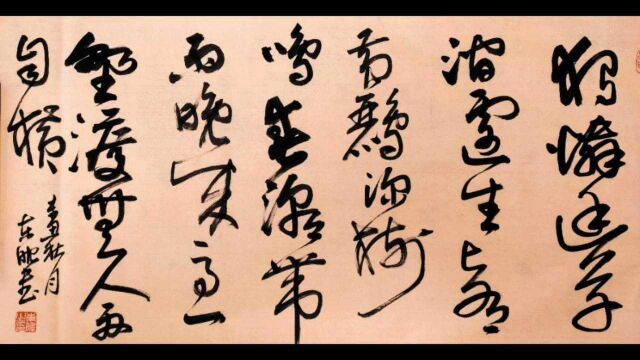 獨憐幽草
澗邊生上有
黃鸝深樹
鳴春潮帶
雨晚來急
野渡無人舟
自橫
辛丑秋月